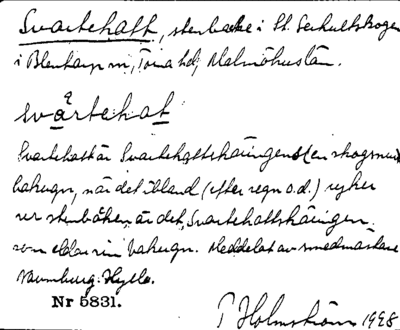 Svartehatt, stenbacke i St. Serkultskogen
i Blentarp sn, Torna hd, Malmöhus län.
svårtehat
Svartehatt är Svartehattskäringens (en skogsnuva)
bakugn, när det ibland (efter regn o.d.) ryker
ur stenbacken är det, Svartehattskäringen
som eldar i sin bakugn. Meddelat av smedmästare
Naumburg. Hyllo.
Nr 5831.
T Holmström 1928